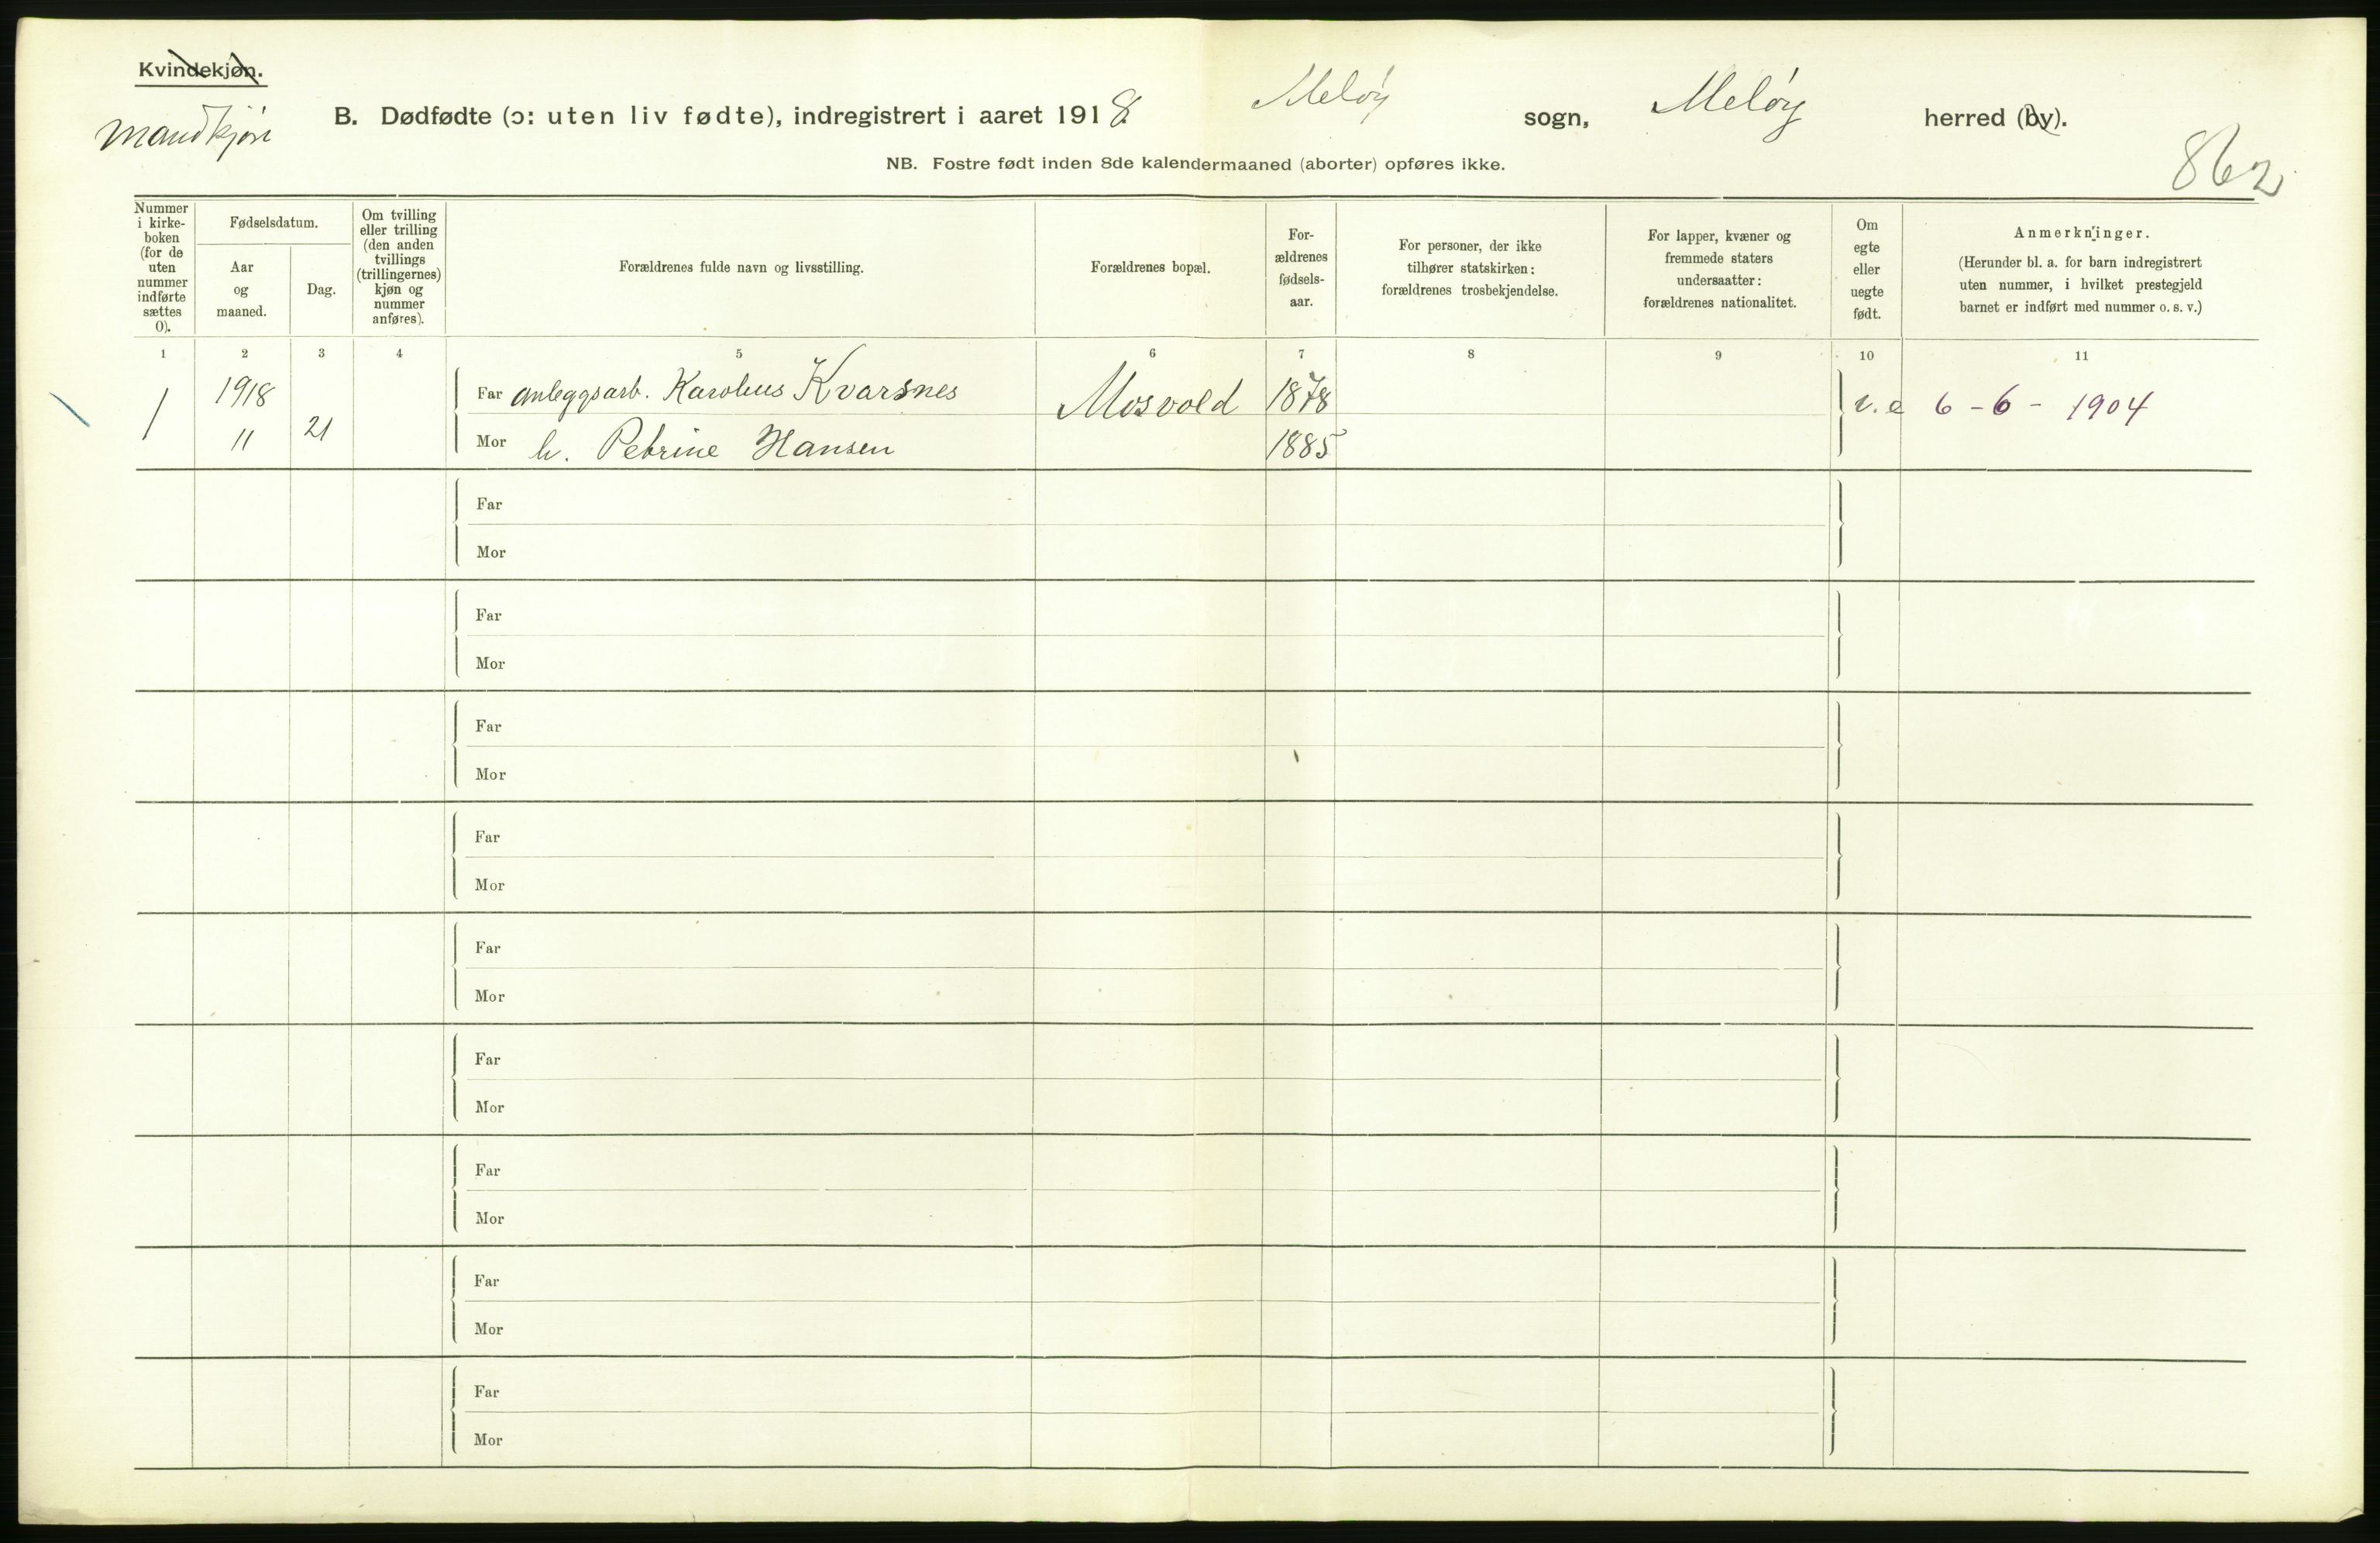 Kvindekjøn.
Mandkjøn
B. Dødfødte (ɔ: uten liv fødte), indregistrert i aaret 1918. Meløy sogn, Meløy herred (by).
NB. Fostre født inden 8de kalendermaaned (aborter) opføres ikke.
862
Nummer
i kirke-
boken
(for de
uten
nummer
indførte
sættes
0).
Fødselsdatum.
Aar
og
maaned.
Dag.
Om tvilling
eller trilling
(den anden
tvillings
(trillingernes)
kjøn og
nummer
anføres).
Forældrenes fulde navn og livsstilling.
Forældrenes bopæl.
For-
ældrenes
fødsels-
aar.
For personer, der ikke
tilhører statskirken:
forældrenes trosbekjendelse.
For lapper, kvæner og
fremmede staters
undersaatter:
forældrenes nationalitet.
Om
egte
eller
uegte
født.
Anmerkninger.
(Herunder bl. a. for barn indregistrert
uten nummer, i hvilket prestegjeld
barnet er indført med nummer o. s. v.)
1 2 3 4 5 6 7 8 9 10 11
1 1918 11 21
Far anleggsarb. Karolius Kvarsnes Mosvold 1878 e 6-6-1904
Mor h. Petrine Hansen 1885
Far
Mor
Far
Mor
Far
Mor
Far
Mor
Far
Mor
Far
Mor
Far
Mor
Far
Mor
Far
Mor